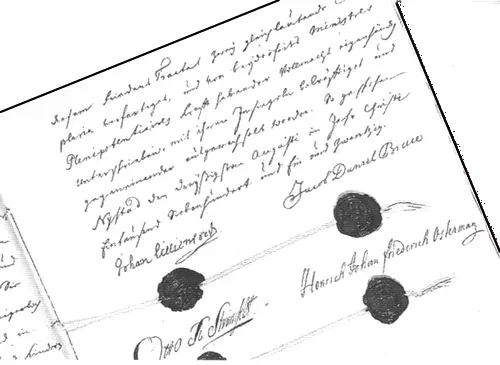 diesem Friedens Tractat zwey gleichlautende
plaria verfertiget, und von beyderseits Ministres
Plenipotentiaires krafft habender Vollmacht eigenhändig
unterschrieben mit ihren Insiegeln bekräfftiget und
gegeneinander ausgewechselt worden. So geschehen
Nystad den dreyßigsten Augusti im Jahr Christi
Eintausend Siebenhundert und Ein und Zwantzig.
Johan Lillienstedt
Jacob Daniel Bruce
Otto
Henrich Johan Friederich Osterman